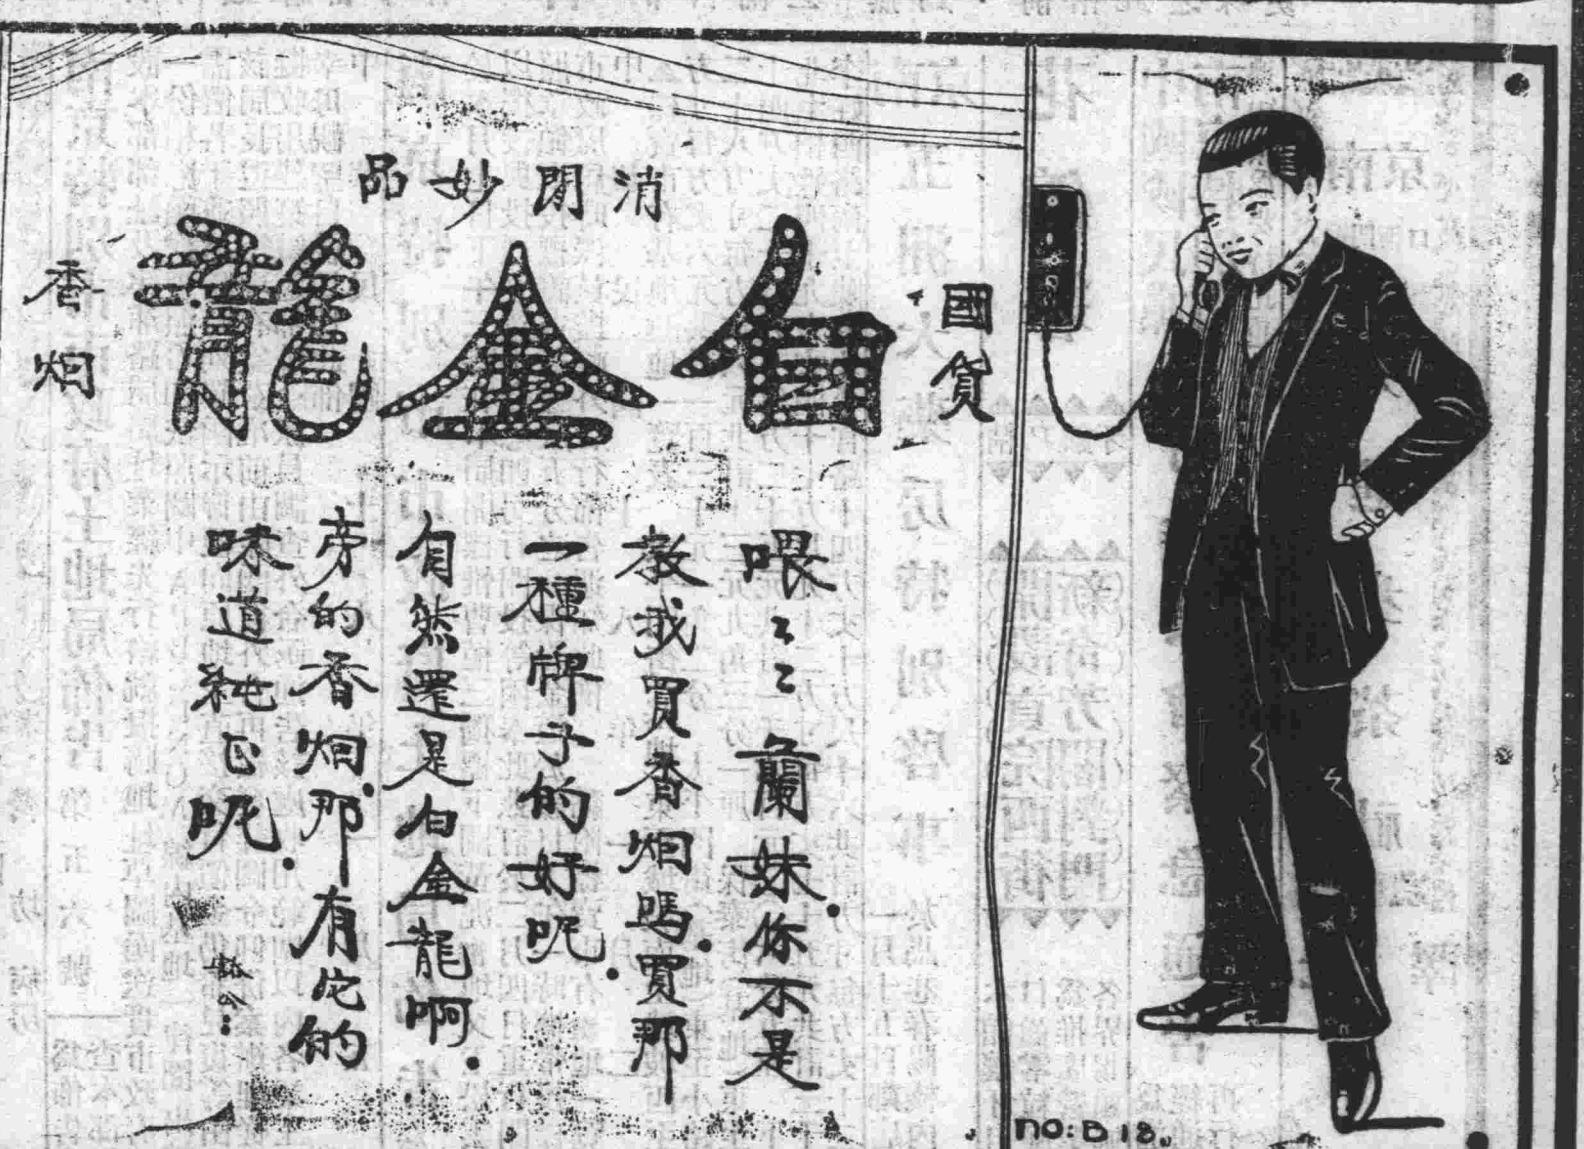 消閒妙品
國貨
白金龍
香烟
喂〻〻蘭妹.你不是
教我買香烟嗎.買那
一種牌子的好呢.
自然還是白金龍啊.
旁的香烟.那有它的
味道純正呢.
NO: B 18.